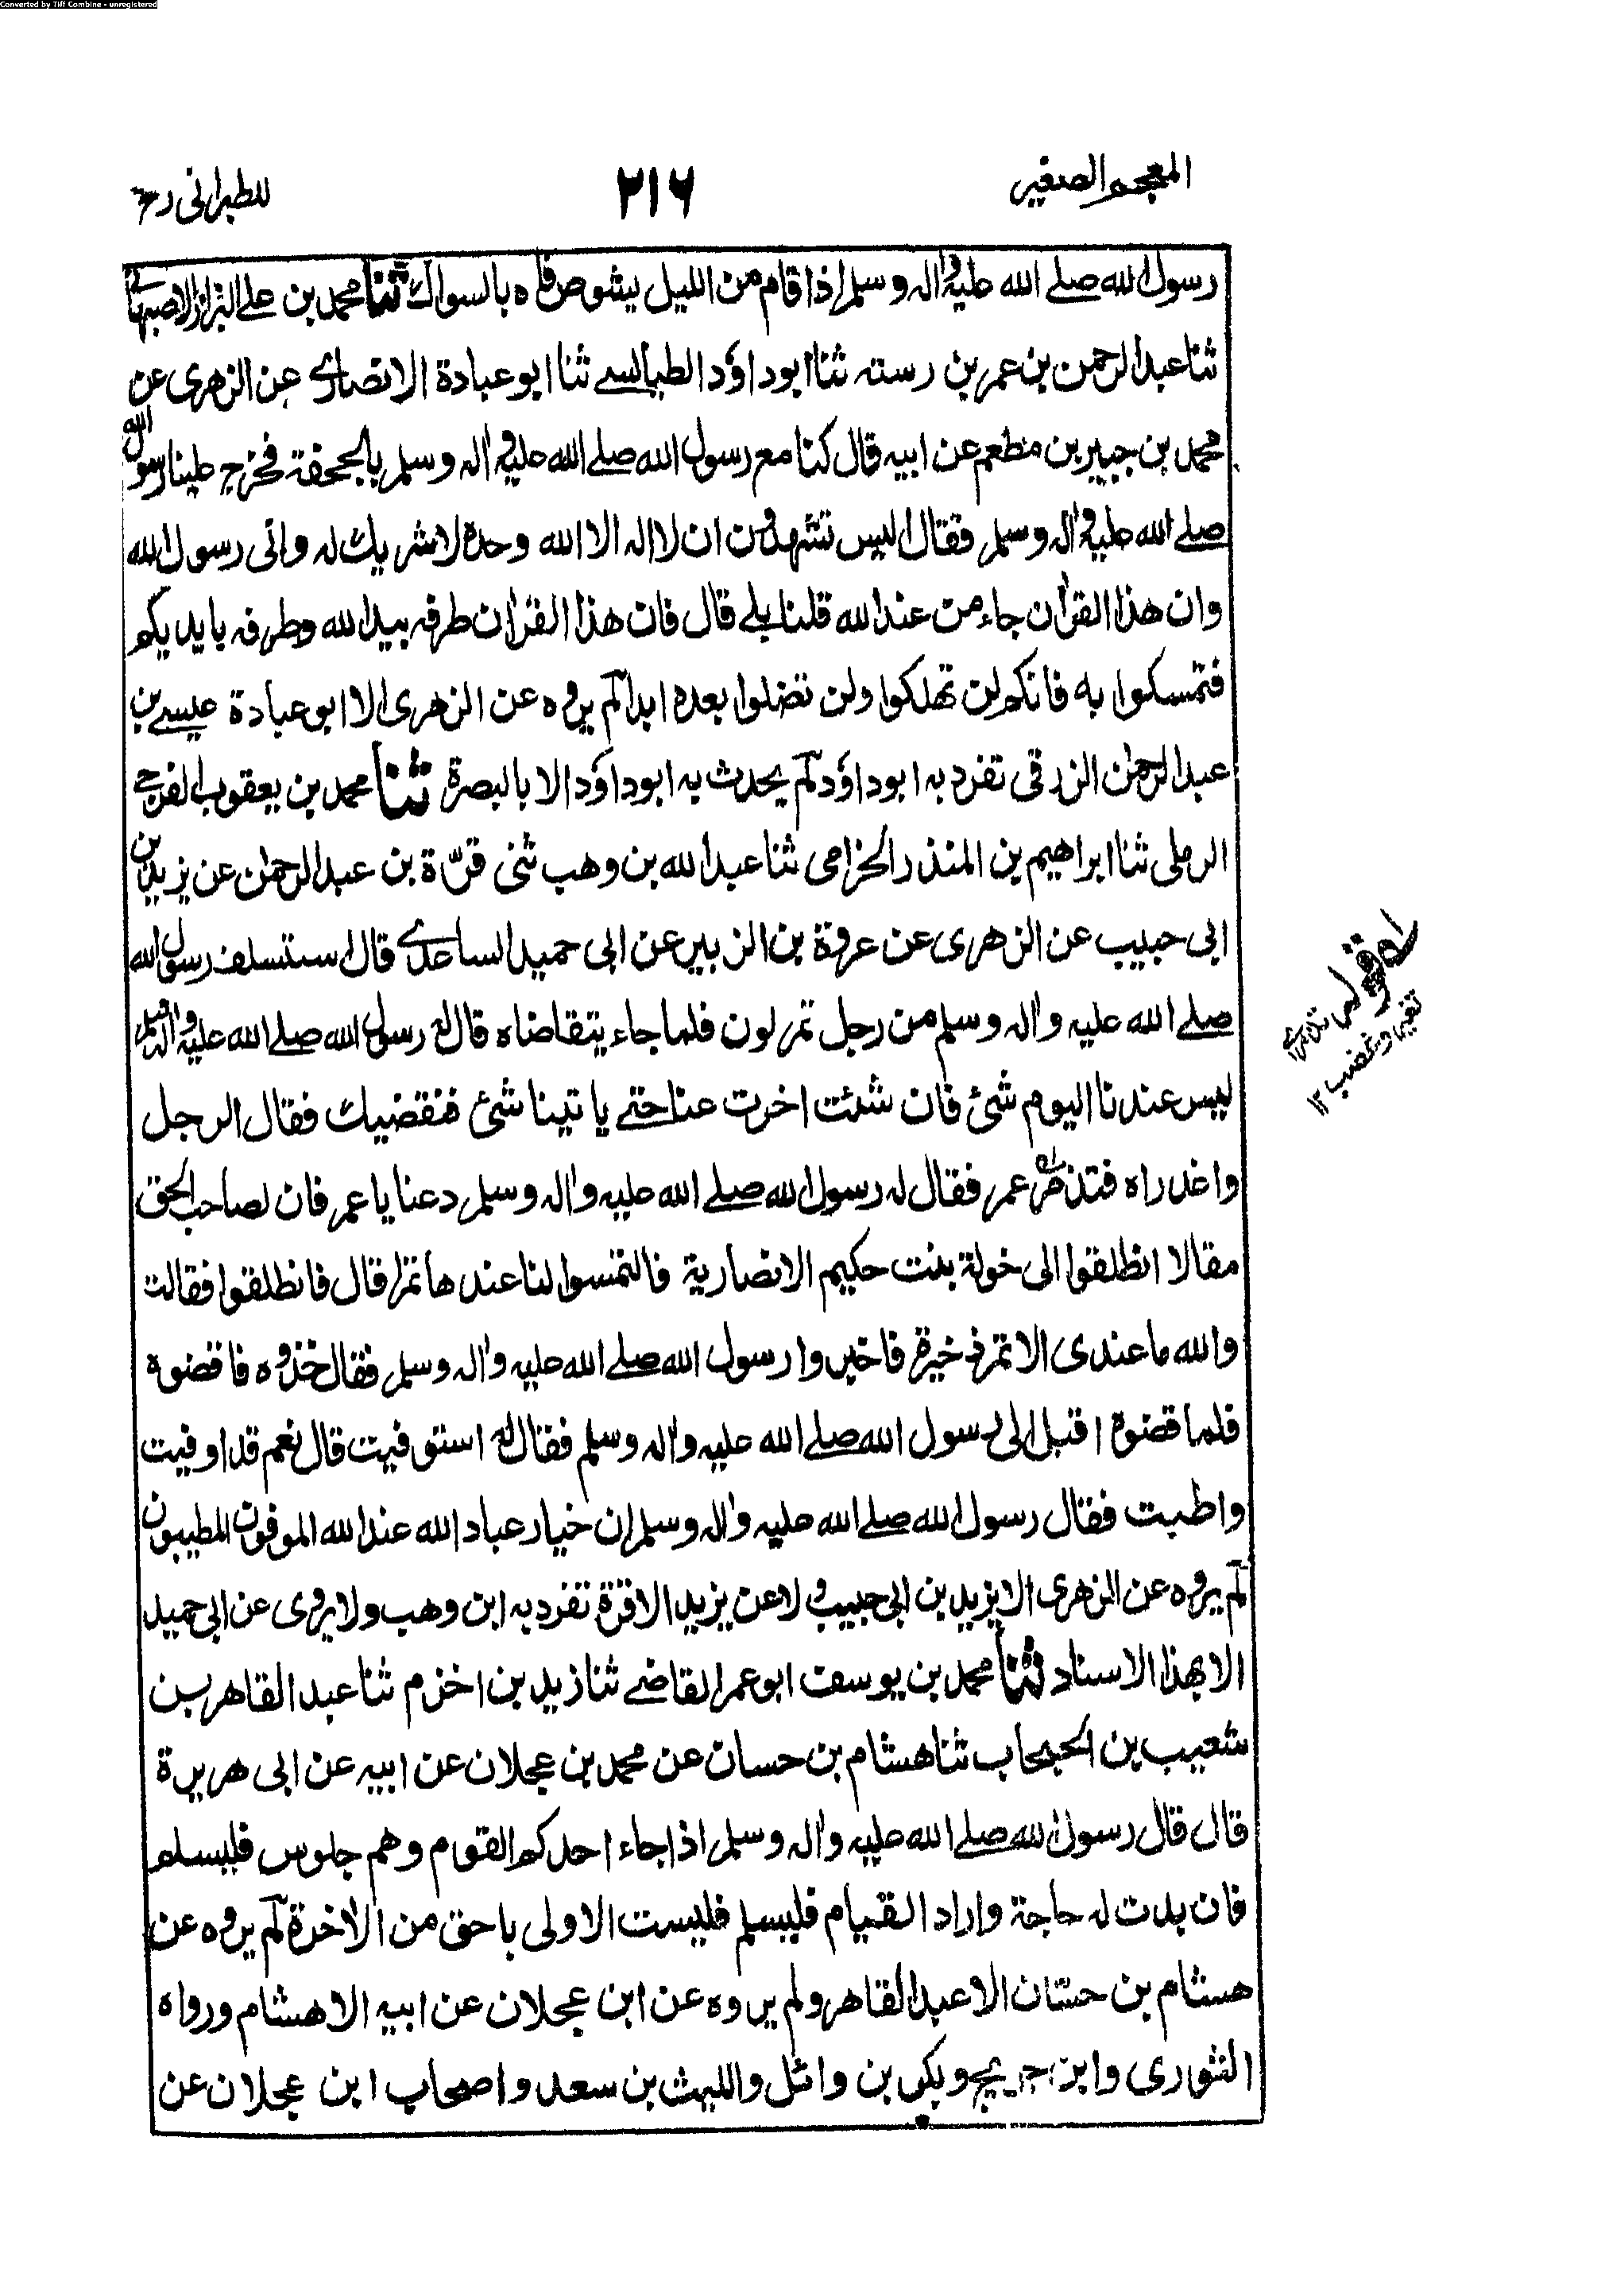 Converted by Tiff Combine - unregistered
المعجم الصغير
٢١٦
للطبراني رح
رسول الله صلے الله عليه واله وسلم اذا قام من الليل يشوص فاه بالسواك ثنا محمد بن علي البزار الاصبهاني
ثنا عبد الرحمن بن عمر بن رسته ثنا ابو داؤد الطيالسے ثنا ابو عبادة الانصارے عن الزهرى عن
محمد بن جبير بن مطعم عن ابيه قال كنا مع رسول الله صلے الله عليه واله وسلم بالجحفة فخرج علينا رسول الله
صلے الله عليه واله وسلم فقال اليس تشهدون ان لا اله الا الله وحده لا شريك له واني رسول الله
وان هذا القرآن جاء من عند الله قلنا بلے قال فان هذا القرآن طرفه بيد الله وطرفه بايديكم
فتمسكوا به فانكم لن تهلكوا ولن تضلوا بعده ابدا لم يروه عن الزهرى الا ابو عبادة عيسے بن
عبد الرحمٰن الزرقى تفرد به ابو داؤد لم يحدث به ابو داؤد الا بالبصرة ثنا محمد بن يعقوب الفرجے
الرملى ثنا ابراهيم بن المنذر الحزامى ثنا عبد الله بن وهب ثنى قرّة بن عبد الرحمٰن عن يزيد بن
ابى حبيب عن الزهرى عن عروة بن الزبير عن ابى حميد الساعدے قال استسلف رسول الله
صلے الله عليه واله وسلم من رجل تمر لون فلما جاء يتقاضاه قال له رسول الله صلے الله عليه واله وسلم
ليس عندنا اليوم شئ فان شئت اخرت عنا حتے ياتينا شئ فنقضيك فقال الرجل
واغدراه فتذمر عمر فقال له رسول الله صلے الله عليه واله وسلم دعنا يا عمر فان لصاحب الحق
مقالا انطلقوا الى خولة بنت حكيم الانصارية فالتمسوا لنا عندها تمرا قال فانطلقوا فقالت
والله ما عندى الا تمر ذخيرة فاخبروا رسول الله صلے الله عليه واله وسلم فقال خذوه فاقضوه
فلما قضوه اقبل الى رسول الله صلے الله عليه واله وسلم فقال له استوفيت قال نعم قد اوفيت
واطبت فقال رسول الله صلے الله عليه واله وسلم ان خيار عباد الله عند الله الموفون المطيبون
لم يروه عن الزهرى الا يزيد بن ابى حبيب ولا عن يزيد الا قرة تفرد به ابن وهب ولا يروى عن ابى حميد
الا بهذا الاسناد ثنا محمد بن يوسف ابو عمر القاضے ثنا زيد بن اخزم ثنا عبد القاهر بن
شعيب بن الحبحاب ثنا هشام بن حسان عن محمد بن عجلان عن ابيه عن ابى هريرة
قال قال رسول الله صلے الله عليه واله وسلم اذا جاء احدكم القوم وهم جلوس فليسلم
فان بدت له حاجة واراد القيام فليسلم فليست الاولى باحق من الاخرة لم يروه عن
هشام بن حسّان الا عبد القاهر ولم يروه عن ابن عجلان عن ابيه الا هشام ورواه
الثوري وابن جريج وبكر بن وائل والليث بن سعد واصحاب ابن عجلان عن
له قوله
وغضب ١٢